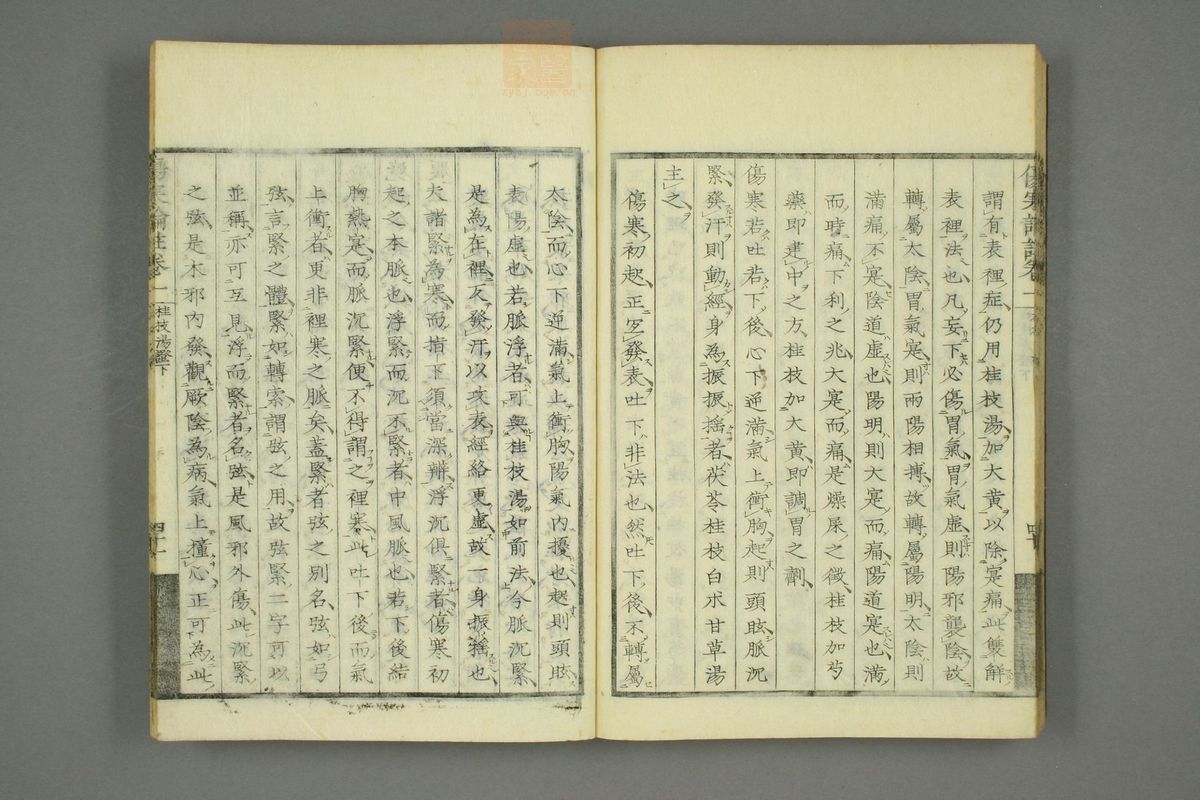 謂有表裡症仍用桂枝湯加大黃以除寔痛此雙解
表裡法也凡妄下必傷胃氣胃氣虛則陽邪襲陰故
轉屬太陰胃氣寔則兩陽相搏故轉屬陽明太陰則
滿痛不寔陰道虛也陽明則大寔而痛陽道寔也滿
而時痛下利之兆大寔而痛是燥屎之徵桂枝加芍
藥即建中之方桂枝加大黃即調胃之劑
傷寒若吐若下後心下逆滿氣上衝胸起則頭眩脈沉
緊發汗則動經身為振振搖者茯苓桂枝白朮甘草湯
主之
傷寒初起正宜發表吐下非法也然吐下後不轉屬
太陰而心下逆滿氣上衝胸陽氣內擾也起則頭眩
表陽虛也若脈浮者可與桂枝湯如前法今脈沉緊
是為在裡反發汗以攻表經絡更虛故一身振搖也
夫諸緊為寒而指下須當深辨浮沉俱緊者傷寒初
起之本脈也浮緊而沉不緊者中風脈也若下後結
胸熱寔而脈沉緊便不得謂之裡寒此吐下後而氣
上衝者更非裡寒之脈矣蓋緊者弦之別名弦如弓
弦言緊之體緊如轉索謂弦之用故弦緊二字可以
並稱亦可互見浮而緊者名弦是風邪外傷此沉緊
之弦是木邪內發觀厥陰為病氣上撞心正可為此
傷寒論註卷一
桂枝湯證下
四十一
四十